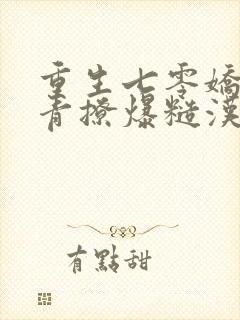 重生七零嬌
青撩爆糙漢
有點甜